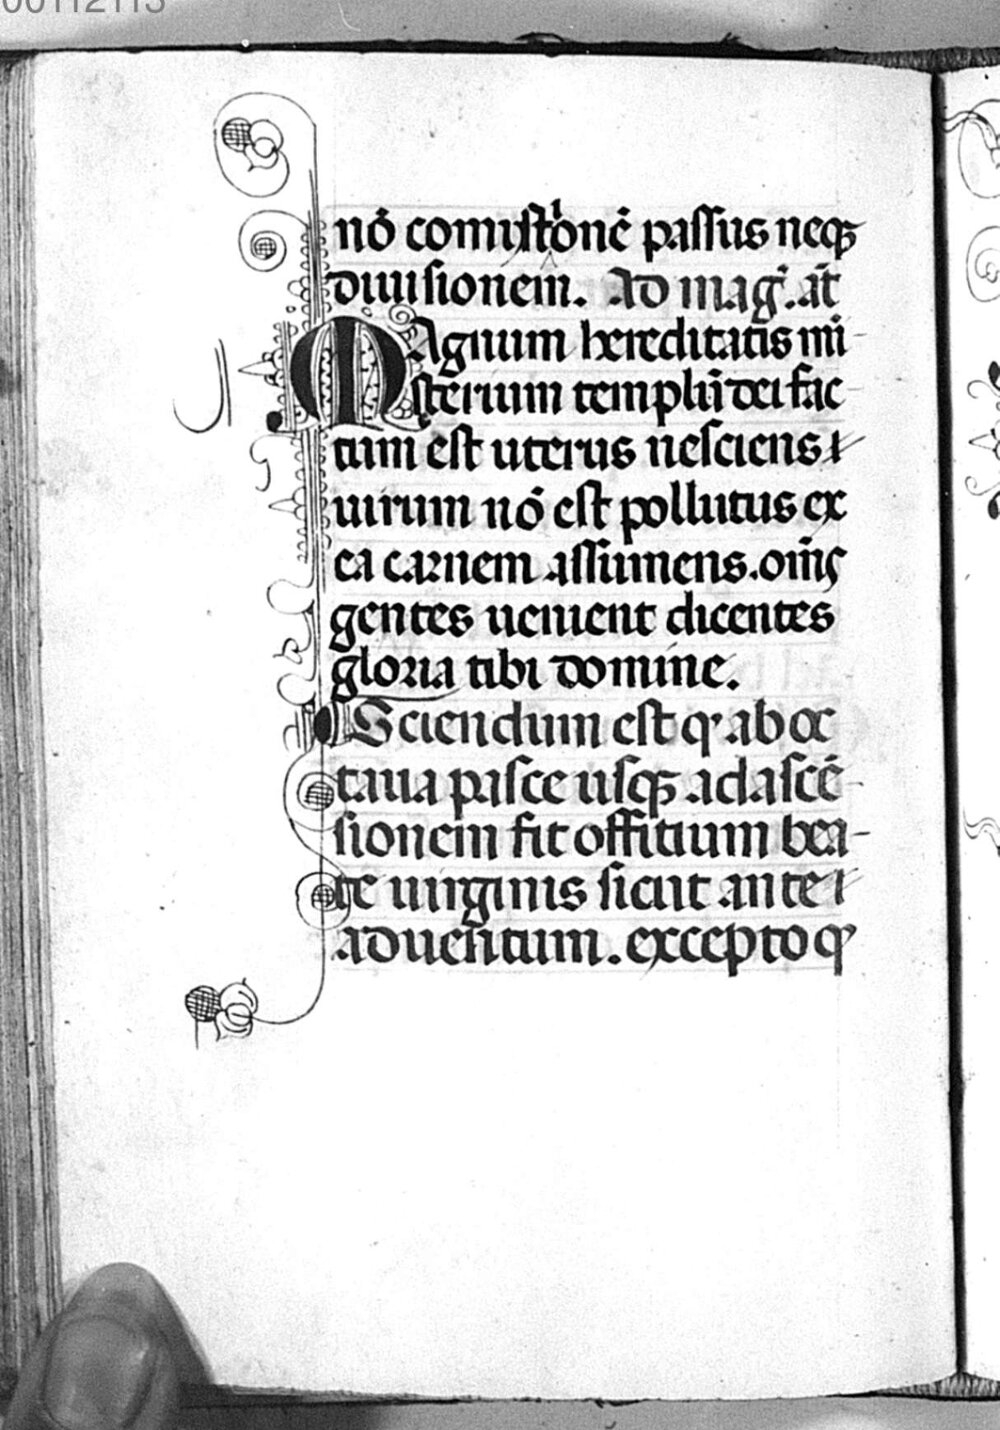 00112113
nō comixtionē passus neqꝫ
diuisionem. Ad mag̃. añ
Magnum hereditatis mi
sterium templū dei fac
tum est uterus nesciens
uirum nō est pollutus ex
ea carnem assumens. om̄s
gentes uenient dicentes
gloria tibi domine.
Sciendum est qꝫ ab oc
taua pasce usqꝫ ad ascē
sionem fit offitium bea
te uirginis sicut ante
aduentum. excepto qꝫ